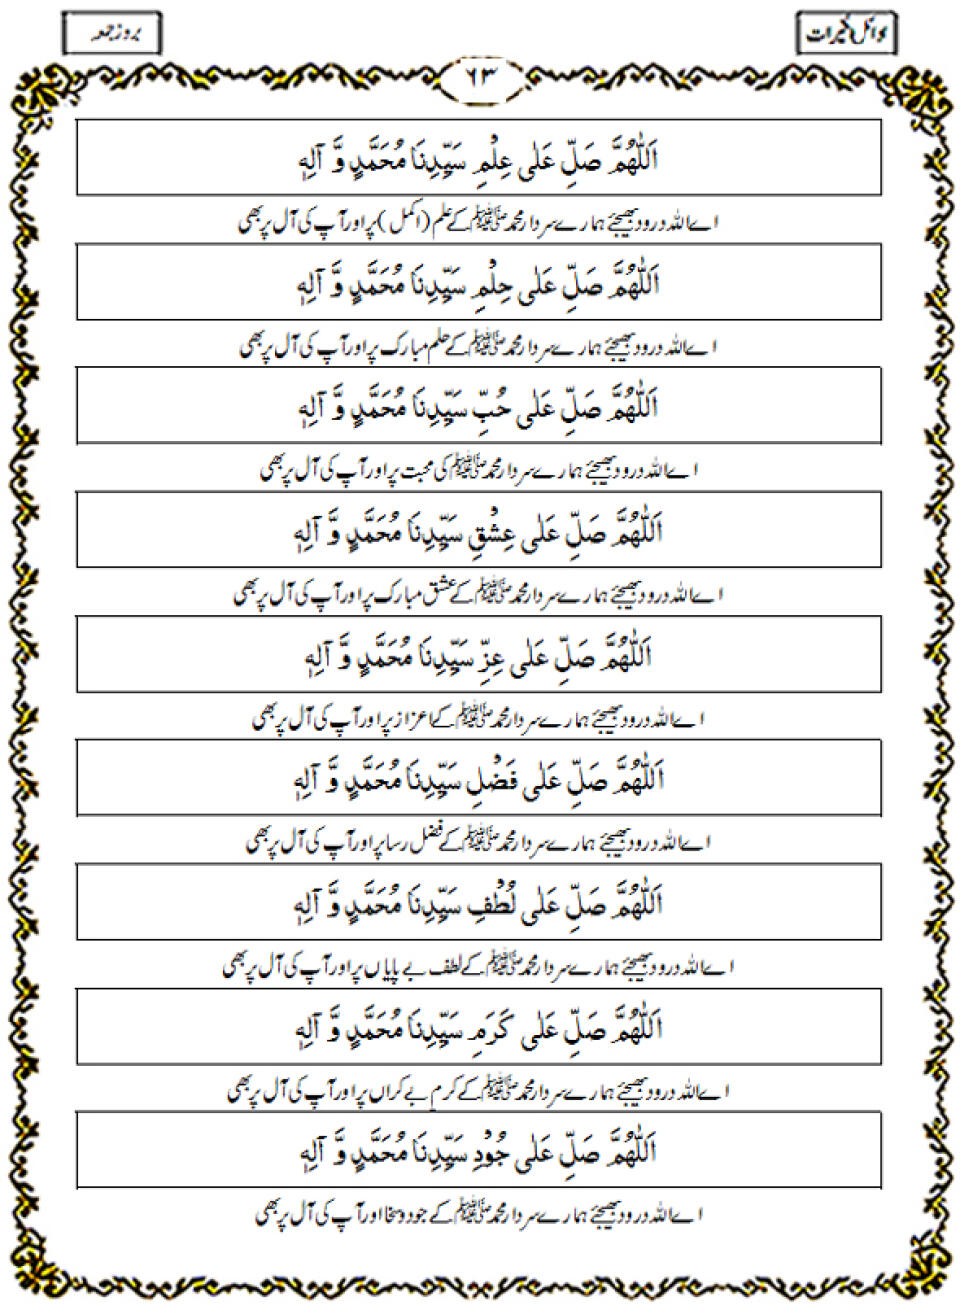 بروز جمعہ
۶۳
اَللّٰهُمَّ صَلِّ عَلٰی عِلْمِ سَيِّدِنَا مُحَمَّدٍ وَّ آلِهٖ
اے اللہ درود بھیجئے ہمارے سردار محمد ﷺ کے علم (اکمل) پر اور آپ کی آل پر بھی
اَللّٰهُمَّ صَلِّ عَلٰی حِلْمِ سَيِّدِنَا مُحَمَّدٍ وَّ آلِهٖ
اے اللہ درود بھیجئے ہمارے سردار محمد ﷺ کے حلم مبارک پر اور آپ کی آل پر بھی
اَللّٰهُمَّ صَلِّ عَلٰی حُبِّ سَيِّدِنَا مُحَمَّدٍ وَّ آلِهٖ
اے اللہ درود بھیجئے ہمارے سردار محمد ﷺ کی محبت پر اور آپ کی آل پر بھی
اَللّٰهُمَّ صَلِّ عَلٰی عِشْقِ سَيِّدِنَا مُحَمَّدٍ وَّ آلِهٖ
اے اللہ درود بھیجئے ہمارے سردار محمد ﷺ کے عشق مبارک پر اور آپ کی آل پر بھی
اَللّٰهُمَّ صَلِّ عَلٰی عِزِّ سَيِّدِنَا مُحَمَّدٍ وَّ آلِهٖ
اے اللہ درود بھیجئے ہمارے سردار محمد ﷺ کے اعزاز پر اور آپ کی آل پر بھی
اَللّٰهُمَّ صَلِّ عَلٰی فَضْلِ سَيِّدِنَا مُحَمَّدٍ وَّ آلِهٖ
اے اللہ درود بھیجئے ہمارے سردار محمد ﷺ کے فضل رسا پر اور آپ کی آل پر بھی
اَللّٰهُمَّ صَلِّ عَلٰی لُطْفِ سَيِّدِنَا مُحَمَّدٍ وَّ آلِهٖ
اے اللہ درود بھیجئے ہمارے سردار محمد ﷺ کے لطف بے پایاں پر اور آپ کی آل پر بھی
اَللّٰهُمَّ صَلِّ عَلٰی كَرَمِ سَيِّدِنَا مُحَمَّدٍ وَّ آلِهٖ
اے اللہ درود بھیجئے ہمارے سردار محمد ﷺ کے کرم بے کراں پر اور آپ کی آل پر بھی
اَللّٰهُمَّ صَلِّ عَلٰی جُوْدِ سَيِّدِنَا مُحَمَّدٍ وَّ آلِهٖ
اے اللہ درود بھیجئے ہمارے سردار محمد ﷺ کے جود و سخا اور آپ کی آل پر بھی